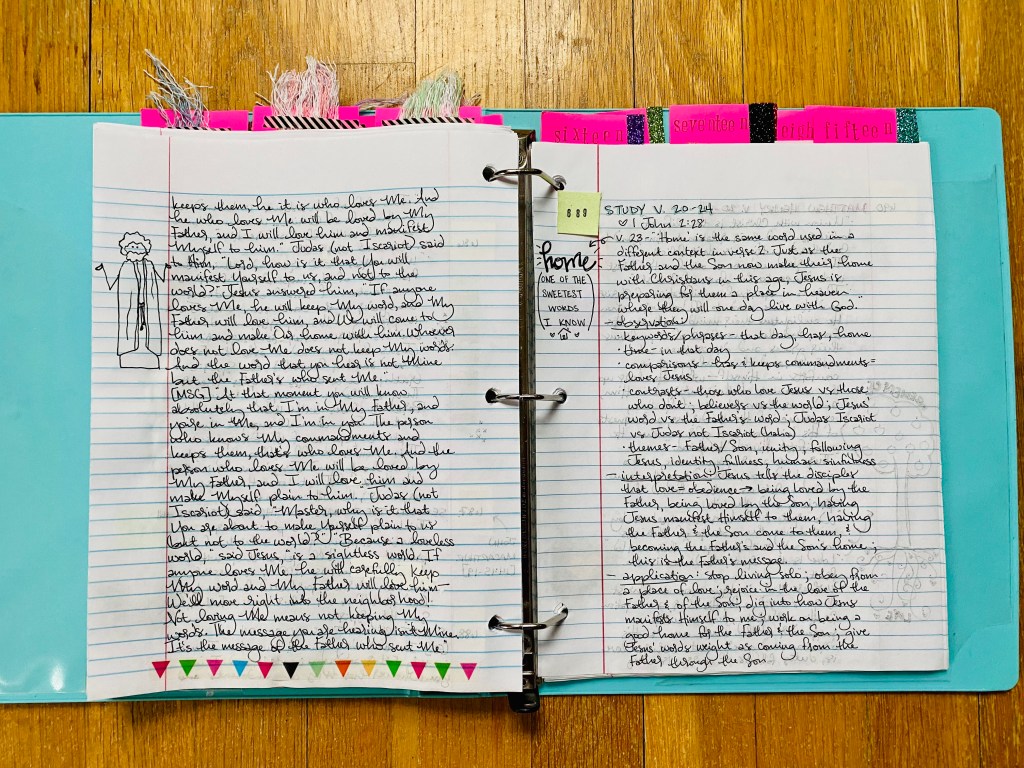 sixteen
seventeen
eighteen
fifteen
keeps them, he it is who loves Me. And
he who loves Me will be loved by My
Father, and I will love him and manifest
Myself to him." Judas (not Iscariot) said
to Him, "Lord, how is it that You will
manifest Yourself to us, and not to the
world?" Jesus answered him, "If anyone
loves Me, he will keep My word, and My
Father will love him, and We will come to
him and make Our home with him. Whoever
does not love Me does not keep My words.
And the word that you hear is not Mine
but the Father's who sent Me."
[MSG] At that moment you will know
absolutely that I'm in My Father, and
you're in Me, and I'm in you. The person
who knows My commandments and
keeps them, that's who loves Me. And the
person who loves Me will be loved by
My Father, and I will love him and
make Myself plain to him. Judas (not
Iscariot) said, "Master, why is it that
You are about to make Yourself plain to us
but not to the world?" "Because a loveless
world," said Jesus, "is a sightless world. If
anyone loves Me, he will carefully keep
My word and My Father will love him—
We'll move right into the neighborhood!
Not loving Me means not keeping My
words. The message you are hearing isn't Mine.
It's the message of the Father who sent Me."
home
(ONE OF THE
SWEETEST
WORDS
I KNOW)
STUDY V. 20-24
1 John 2:28
V. 23 - "Home" is the same word used in a
different context in verse 2. Just as the
Father and the Son now make their home
with Christians in this age, Jesus is
preparing for them a place in heaven
where they will one day live with God.
- observation:
· keywords/phrases - that day, has, home
· time - in that day
· comparisons - has & keeps commandments =
loves Jesus
· contrasts - those who love Jesus vs those
who don't; believers vs the world; Jesus'
word vs the Father's word; Judas Iscariot
vs Judas not Iscariot (haha)
· themes - Father/Son, unity, following
Jesus, identity, fullness, human sinfulness
- interpretation: Jesus tells the disciples
that love = obedience → being loved by the
Father, being loved by the Son, having
Jesus manifest Himself to them, having
the Father & the Son come to them, &
becoming the Father's and the Son's home;
this is the Father's message.
- application: stop living solo; obey from
a place of love; rejoice in the love of the
Father & of the Son; dig into how Jesus
manifests Himself to me; work on being a
good home for the Father & the Son; give
Jesus' words weight as coming from the
Father through the Son